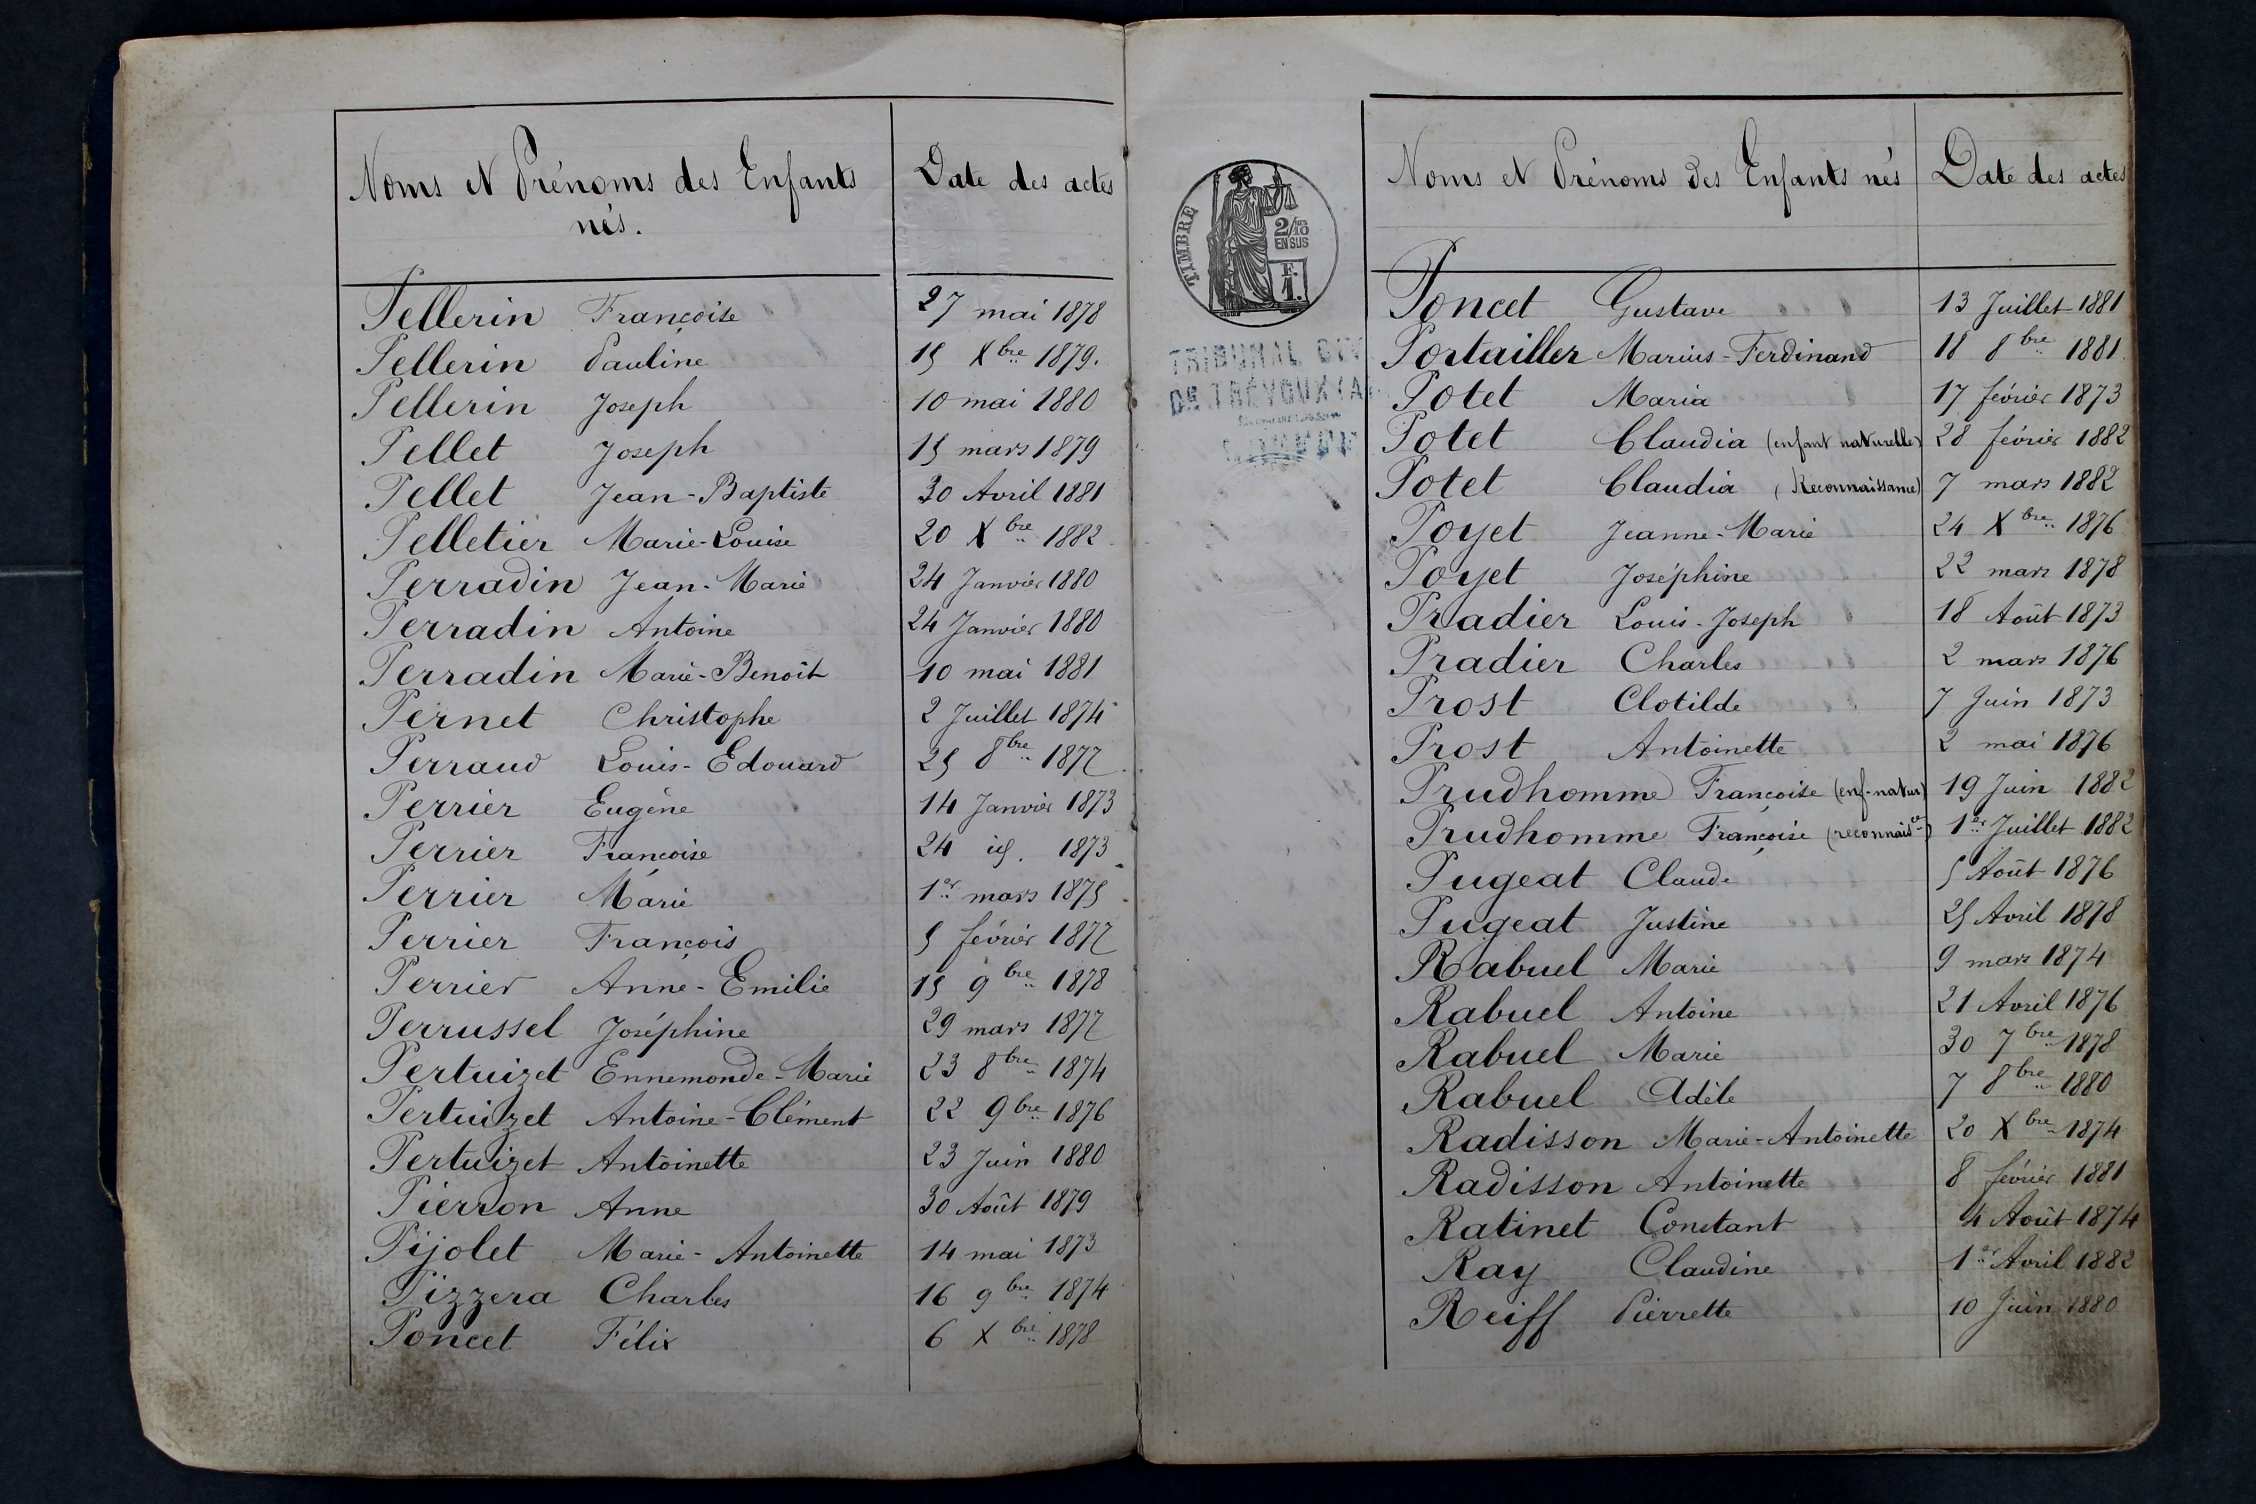 Noms et Prénoms des Enfants
nés.
Date des actes
Pellerin Françoise 27 mai 1878
Pellerin Pauline 15 Xbre 1879.
Pellerin Joseph 10 mai 1880
Pellet Joseph 15 mars 1879
Pellet Jean-Baptiste 30 Avril 1881
Pelletier Marie-Louise 20 Xbre 1882
Perradin Jean-Marie 24 Janvier 1880
Perradin Antoine 24 Janvier 1880
Perradin Marie-Benoît 10 mai 1881
Pernet Christophe 2 Juillet 1874
Perraud Louis-Edouard 25 8bre 1877
Perrier Eugène 14 Janvier 1873
Perrier Françoise 24 id. 1873
Perrier Marie 1er mars 1875
Perrier François 5 février 1877
Perrier Anne-Emilie 15 9bre 1878
Perrussel Joséphine 29 mars 1877
Pertuizet Ennemonde-Marie 23 8bre 1874
Pertuizet Antoine-Clément 22 9bre 1876
Pertuizet Antoinette 23 Juin 1880
Pierron Anne 30 Août 1879
Pijolet Marie-Antoinette 14 mai 1873
Pizzera Charles 16 9bre 1874
Poncet Félix 6 Xbre 1878
TIMBRE
2/10
EN SUS
F.
1.
TRIBUNAL CIV
DE TRÉVOUX (A
Noms et Prénoms des Enfants nés Date des actes
Poncet Gustave 13 Juillet 1881
Portailler Marius-Ferdinand 18 8bre 1881
Potet Maria 17 février 1873
Potet Claudia (enfant naturelle) 28 février 1882
Potet Claudia (Reconnaissance) 7 mars 1882
Poyet Jeanne-Marie 24 Xbre 1876
Poyet Joséphine 22 mars 1878
Pradier Louis-Joseph 18 Août 1873
Pradier Charles 2 mars 1876
Prost Clotilde 7 Juin 1873
Prost Antoinette 2 mai 1876
Prudhomme Françoise (enf-natur) 19 Juin 1882
Prudhomme Françoise (reconnaisce) 1er Juillet 1882
Pugeat Claude 5 Août 1876
Pugeat Justine 25 Avril 1878
Rabuel Marie 9 mars 1874
Rabuel Antoine 21 Avril 1876
Rabuel Marie 30 7bre 1878
Rabuel Adèle 7 8bre 1880
Radisson Marie-Antoinette 20 Xbre 1874
Radisson Antoinette 8 février 1881
Ratinet Constant 4 Août 1874
Ray Claudine 1er Avril 1882
Reiff Pierrette 10 Juin 1880